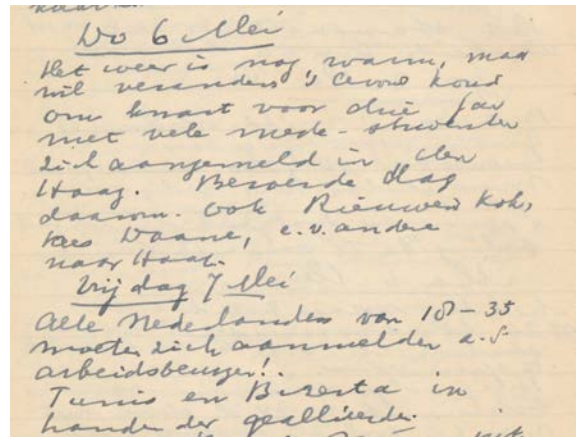 Do 6 Mei
Het weer is nog warm, maar
wil veranderen 's avonds koud
om kwart voor drie Jan
met vele mede-studenten
zich aangemeld in den
Haag. Beroerde dag
daarom. Ook Rieuwert Kok,
Kees Daane, e.v. andere
naar Haag.
Vrijdag 7 Mei
Alle Nederlanders van 18-35
moeten zich aanmelden a.s.
arbeidsbeurzen!.
Tunis en Bizerta in
handen der geallieerden.